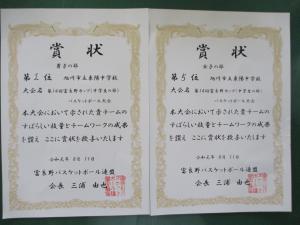 賞状
男子の部
第2位 旭川市立東陽中学校
大会名 第14回富良野カップ(中学生の部)
バスケットボール大会
本大会において示された貴チームの
すばらしい技量とチームワークの成果
を讃え ここに賞状を授与いたします
令和元年8月11日
富良野バスケットボール連盟
会長 三浦 由也
賞状
女子の部
第5位 旭川市立東陽中学校
大会名 第14回富良野カップ(中学生の部)
バスケットボール大会
本大会において示された貴チームの
すばらしい技量とチームワークの成果
を讃え ここに賞状を授与いたします
令和元年8月11日
富良野バスケットボール連盟
会長 三浦 由也